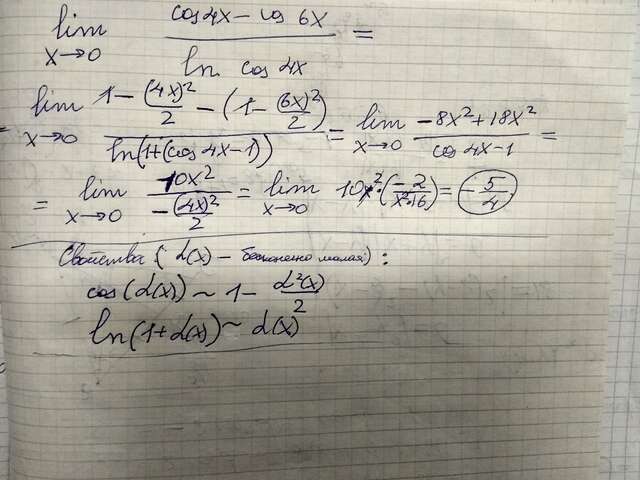 lim x→0 (cos 4x − cos 6x) / (ln cos 4x) =
= lim x→0 (1 − (4x)²/2 − (1 − (6x)²/2)) / (ln(1+(cos 4x−1))) = lim x→0 (−8x²+18x²) / (cos 4x−1) =
= lim x→0 (10x²) / (−(4x)²/2) = lim x→0 10x²·(−2/(x²·16)) = −5/4
Свойства (α(x) – бесконечно малая):
cos(α(x)) ~ 1 − α²(x)/2
ln(1+α(x)) ~ α(x)